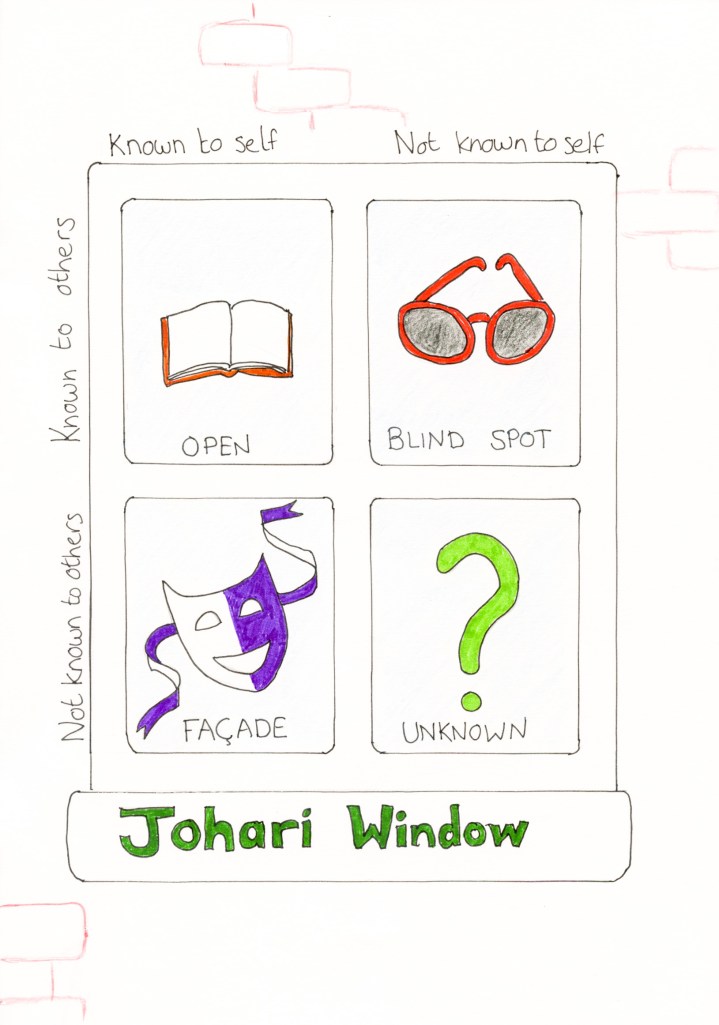 Known to self
Not known to self
Known to others
OPEN
BLIND SPOT
Not known to others
FAÇADE
UNKNOWN
Johari Window